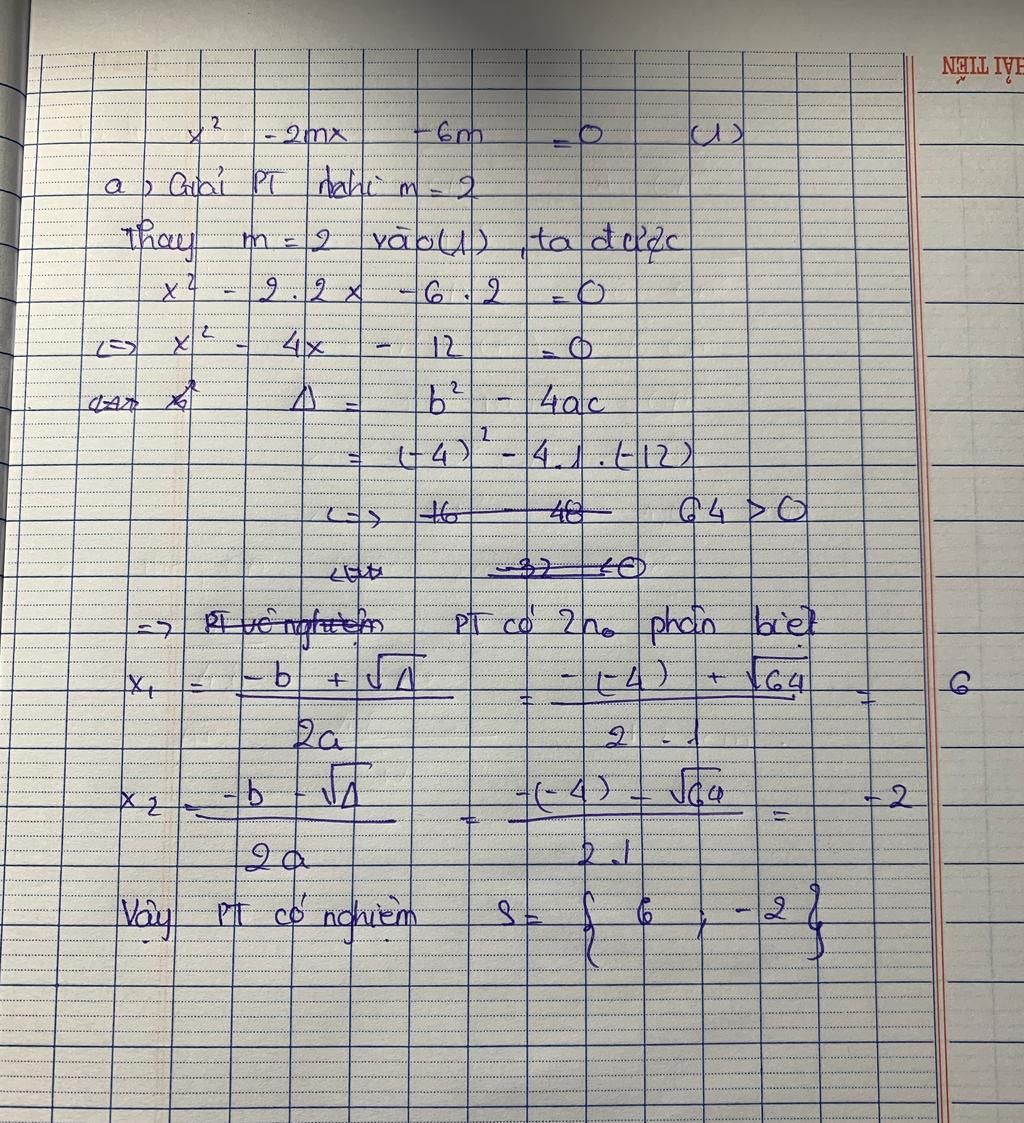 HẢI TIẾN
x² - 2mx - 6m = 0 (1)
a, Giải PT khi m = 2
Thay m = 2 vào (1), ta được
x² - 2.2x - 6.2 = 0
<=> x² - 4x - 12 = 0
Δ = b² - 4ac
= (-4)² - 4.1.(-12)
<=> 16 - 48 64 > 0
-32 < 0
=> PT vô nghiệm PT có 2n₀ phân biệt
x₁ = (-b + √Δ)/2a = (-(-4) + √64)/2.1 = 6
x₂ = (-b - √Δ)/2a = (-(-4) - √64)/2.1 = -2
Vậy PT có nghiệm S = { 6 ; -2 }